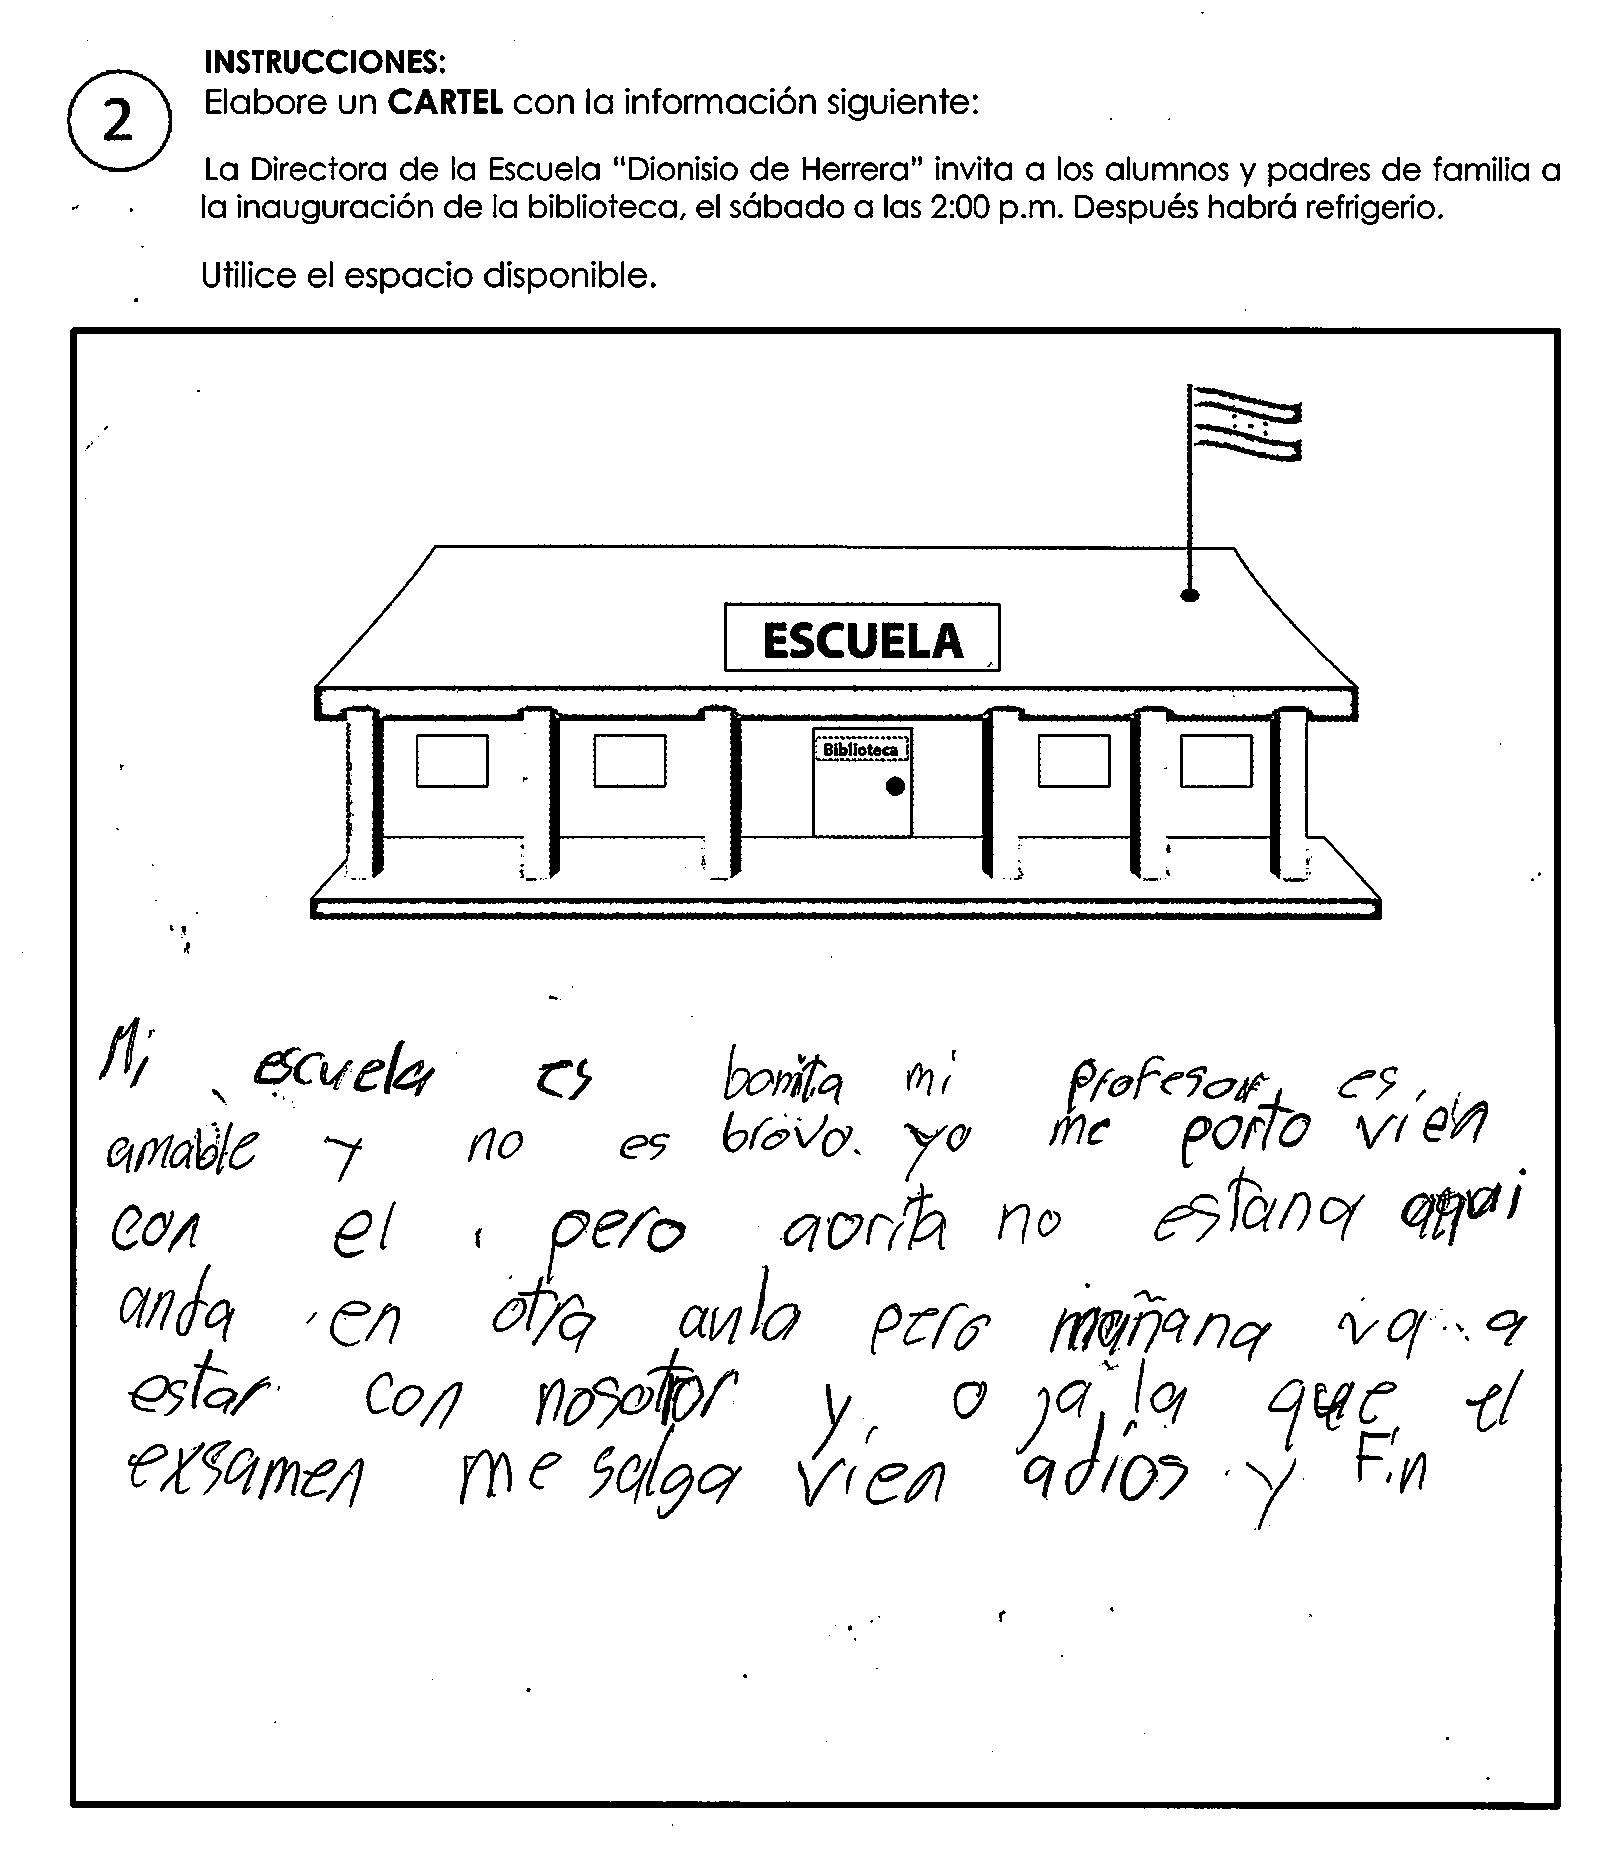 INSTRUCCIONES:
2
Elabore un CARTEL con la información siguiente:
La Directora de la Escuela "Dionisio de Herrera" invita a los alumnos y padres de familia a
la inauguración de la biblioteca, el sábado a las 2:00 p.m. Después habrá refrigerio.
Utilice el espacio disponible.
ESCUELA
Biblioteca
Mi escuela es bonita mi profesor es
amable y no es bravo. yo me porto vien
con el pero aorita no estana aqui
anda en otra aula pero mañana va a
estar con nosotror y o ja la que el
exsamen me salga vien adios y Fin